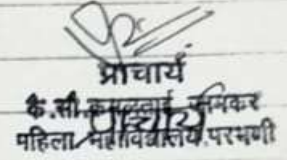 प्राचार्य
कै.सौ.कमलताई जामकर
महिला महाविद्यालय,परभणी
प्राचार्य